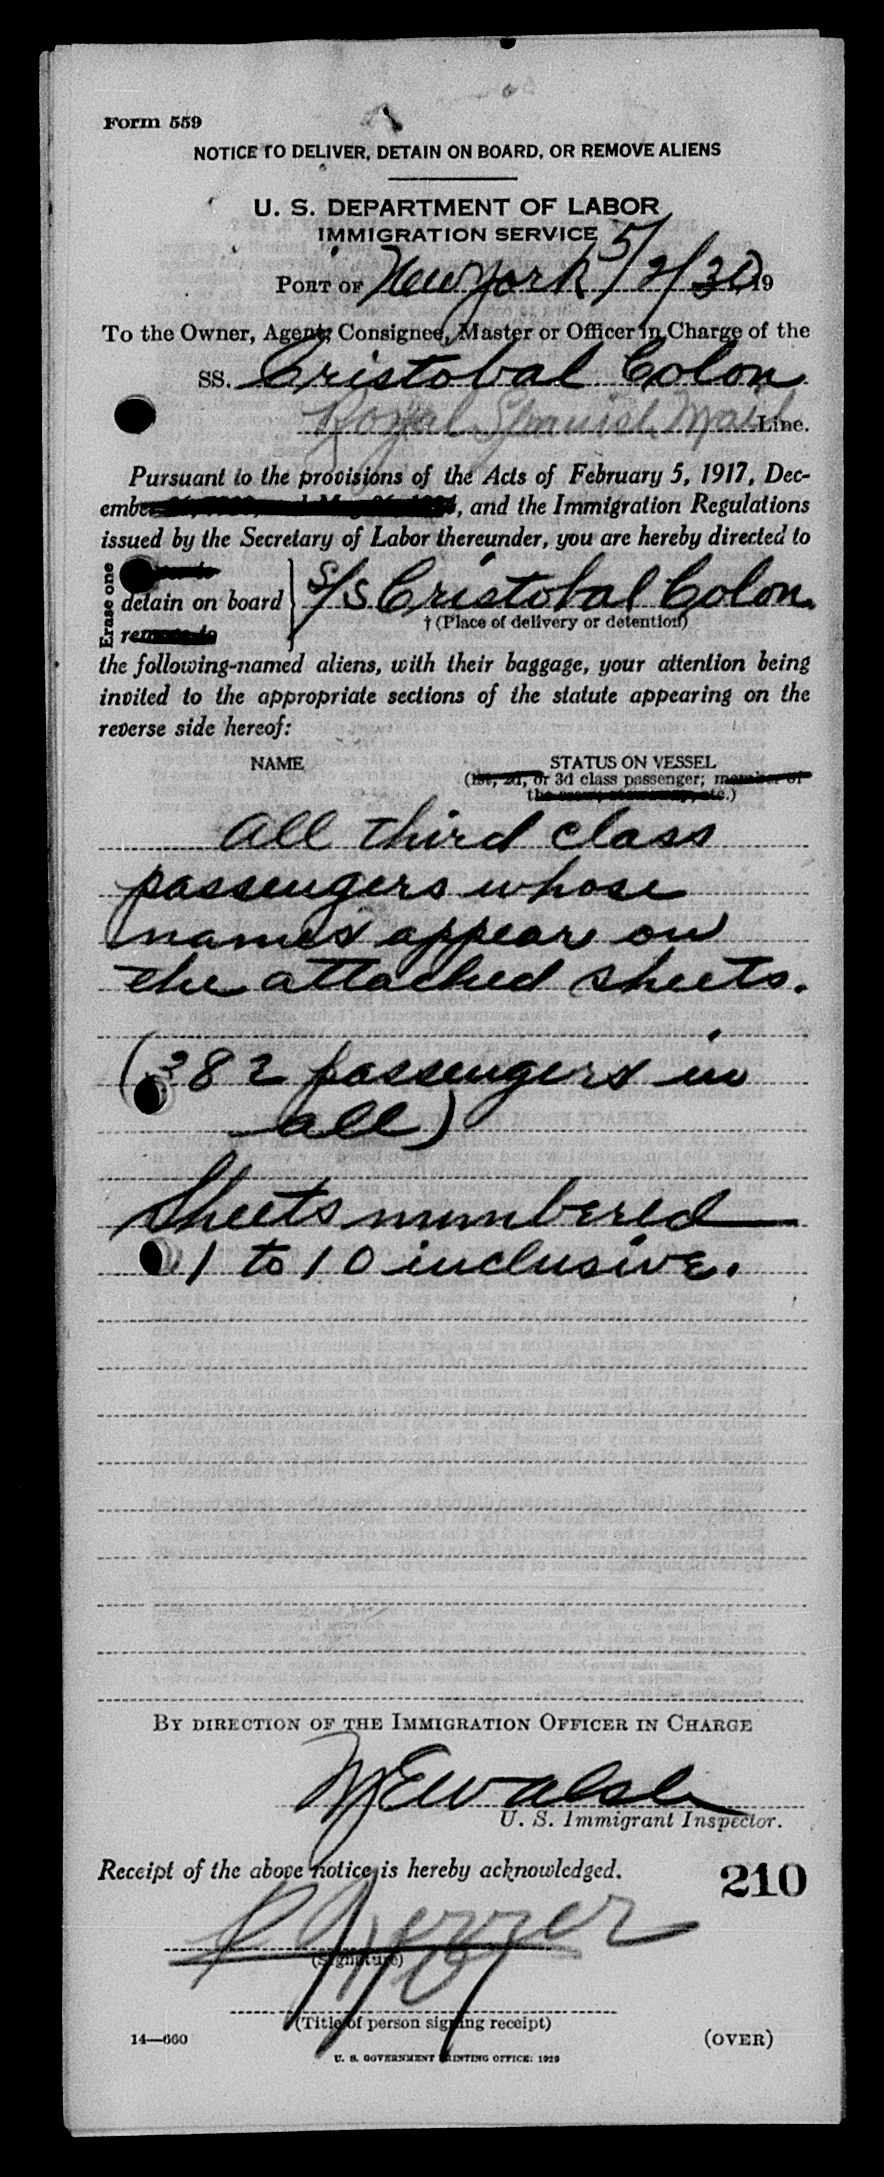 Form 559
NOTICE TO DELIVER, DETAIN ON BOARD, OR REMOVE ALIENS
U. S. DEPARTMENT OF LABOR
IMMIGRATION SERVICE
PORT OF New York 5/2/30, 19
To the Owner, Agent, Consignee, Master or Officer in Charge of the
SS. Cristobal Colon
Royal Spanish Mail Line.
Pursuant to the provisions of the Acts of February 5, 1917, Dec-
ember , and the Immigration Regulations
issued by the Secretary of Labor thereunder, you are hereby directed to
Erase one
detain on board } S/S Cristobal Colon.
† (Place of delivery or detention)
the following-named aliens, with their baggage, your attention being
invited to the appropriate sections of the statute appearing on the
reverse side hereof:
NAME STATUS ON VESSEL
(1st, 2d, or 3d class passenger; member of
the etc.)
All third class
passengers whose
names appear on
the attached sheets.
(382 passengers in
all)
Sheets numbered
1 to 10 inclusive.
BY DIRECTION OF THE IMMIGRATION OFFICER IN CHARGE
U. S. Immigrant Inspector.
Receipt of the above notice is hereby acknowledged.
210
(Signature)
(Title of person signing receipt)
14—660
(OVER)
U. S. GOVERNMENT PRINTING OFFICE: 1929